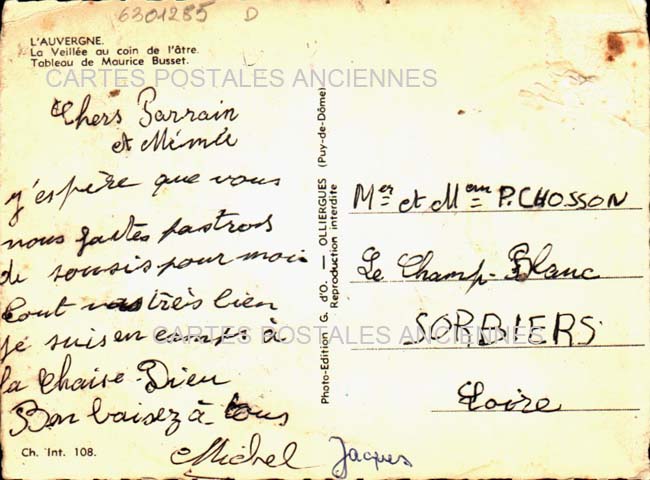 6301285 D
L'AUVERGNE.
La Veillée au coin de l'âtre.
Tableau de Maurice Busset.
CARTES POSTALES ANCIENNES
Chers Parrain
et Mémée
j'espère que vous
nous faites pas trop
de sousis pour moi
tout vas très bien
je suis en camps à
la Chaise-Dieu
Bon baisez à tous
Michel Jacques
Ch. Int. 108.
Photo-Edition G. d'O. — OLLIERGUES (Puy-de-Dôme)
Reproduction interdite
Mer et Mem P. CHOSSON
Le Champ-Blanc
SORBIERS
CARTES POSTALES ANCIENNES
Loire